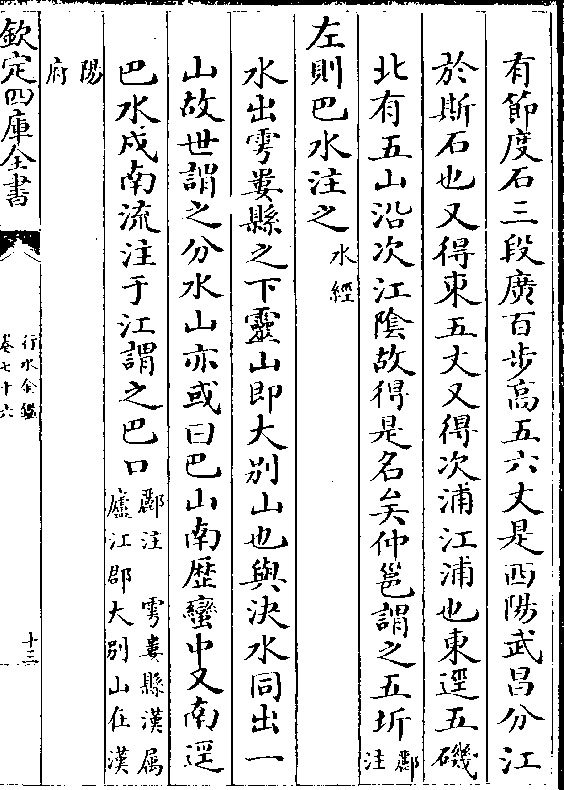 有節度石三段廣百步髙五六丈是西陽武昌分江
於斯石也又得東五丈又得次浦江浦也東逕五磯
北有五山沿次江陰故得是名矣仲邕謂之五圻酈注
左則巴水注之水經
水出雩婁縣之下靈山即大别山也與決水同出一
山故世謂之分水山亦或曰巴山南歷蠻中又南逕
巴水戍南流注于江謂之巴口酈注 雩婁縣漢屬廬江郡大别山在漢
陽府
欽定四庫全書
行水金鑑
卷七十六
十三